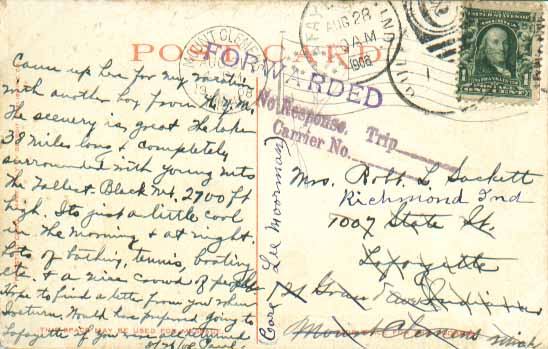 POST CARD
MOUNT CLEMENS
AUG 28
AM
1908
IND
FORWARDED
No Response. Trip
Carrier No.
Came up here for my vacation
with another boy from the Y.M.
The scenery is great. The lake
38 miles long & completely
surrounded with young mts
the Tallest. Black Mt. 2700 ft
high. Its just a little cool
in the morning & at night.
Lots of bathing, tennis, boating
etc. & a nice crowd of people
Hope to find a letter from you when
I return. Would has prepared going to
Lafayette if you were
THIS SPACE MAY BE USED FOR
Care Lee Moorman
Mrs. Robt. L Sackett
Richmond Ind
1007 State St.
Lafayette
Indiana
Mount Clemens Mich